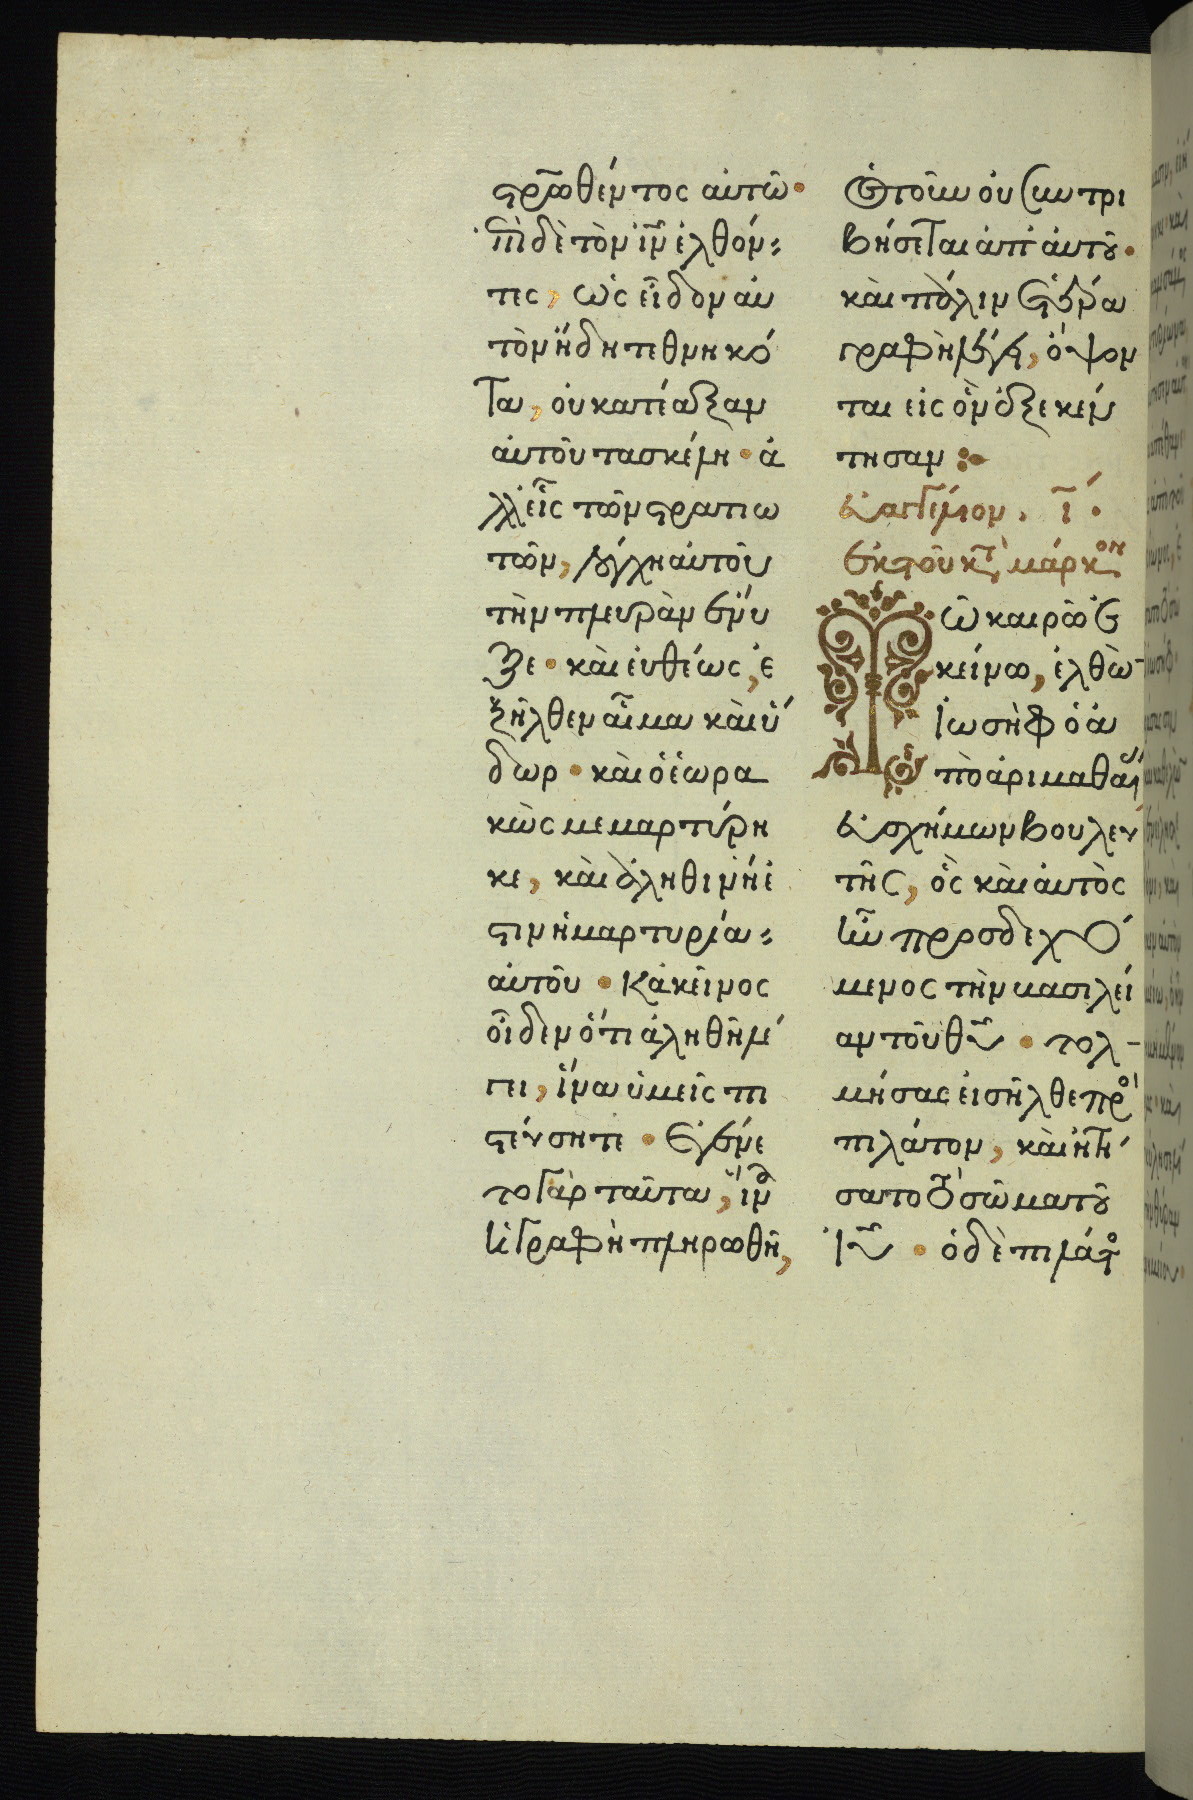 στρωθέντος αὐτῶ·
ἐπὶ δὲ τὸν ἰν̅ ἐλθόν-
τες, ὡς εἶδον αὐ
τὸν ἤδη τεθνηκό
τα, οὐ κατέαξαν
αὐτοῦ τα σκέλη· ἀ
λλ' εἷς τῶν στρατιω
τῶν, λόγχη αὐτοῦ
τὴν πλευρὰν ἔνυ
ξε· καὶ εὐθέως, ἐ
ξῆλθεν αἷμα καὶ ὕ
δωρ· καὶ ὁ ἑωρα
κὼς μεμαρτύρη
κε, καὶ ἀληθινή ἐ
στιν ἡ μαρτυρία
αὐτοῦ· κἀκεῖνος
οἶδεν ὅτι ἀληθῆ λέ
γει, ἵνα ὑμεῖς πι
στεύσητε· ἐγένε
το γὰρ ταῦτα, ἵνα
ἡ γραφὴ πληρωθῆ,
Ὀστοῦν οὐ συντρι
βήσεται ἀπ' αὐτοῦ·
καὶ πάλιν ἑτέρα
γραφὴ λέγει, ὄψον
ται εἰς ὃν ἐξεκέν
τησαν:
Εὐαγγέλιον. ι̅·
Ἐκ τοῦ κατὰ μάρκον
Τῶ καιρῶ ἐ
κείνω, ἐλθὼν
Ἰωσὴφ ὁ ἀ
πὸ ἀριμαθαίας
εὐσχήμων βουλευ
τῆς, ὃς καὶ αὐτὸς
ἦν προσδεχό
μενος τὴν βασιλεί
αν τοῦ θυ̅· τολ-
μήσας εἰσῆλθε πρὸς
πιλάτον, καὶ ἠτή
σατο τὸ σῶμα τοῦ
ἰυ̅· ὁ δὲ πιλάτος